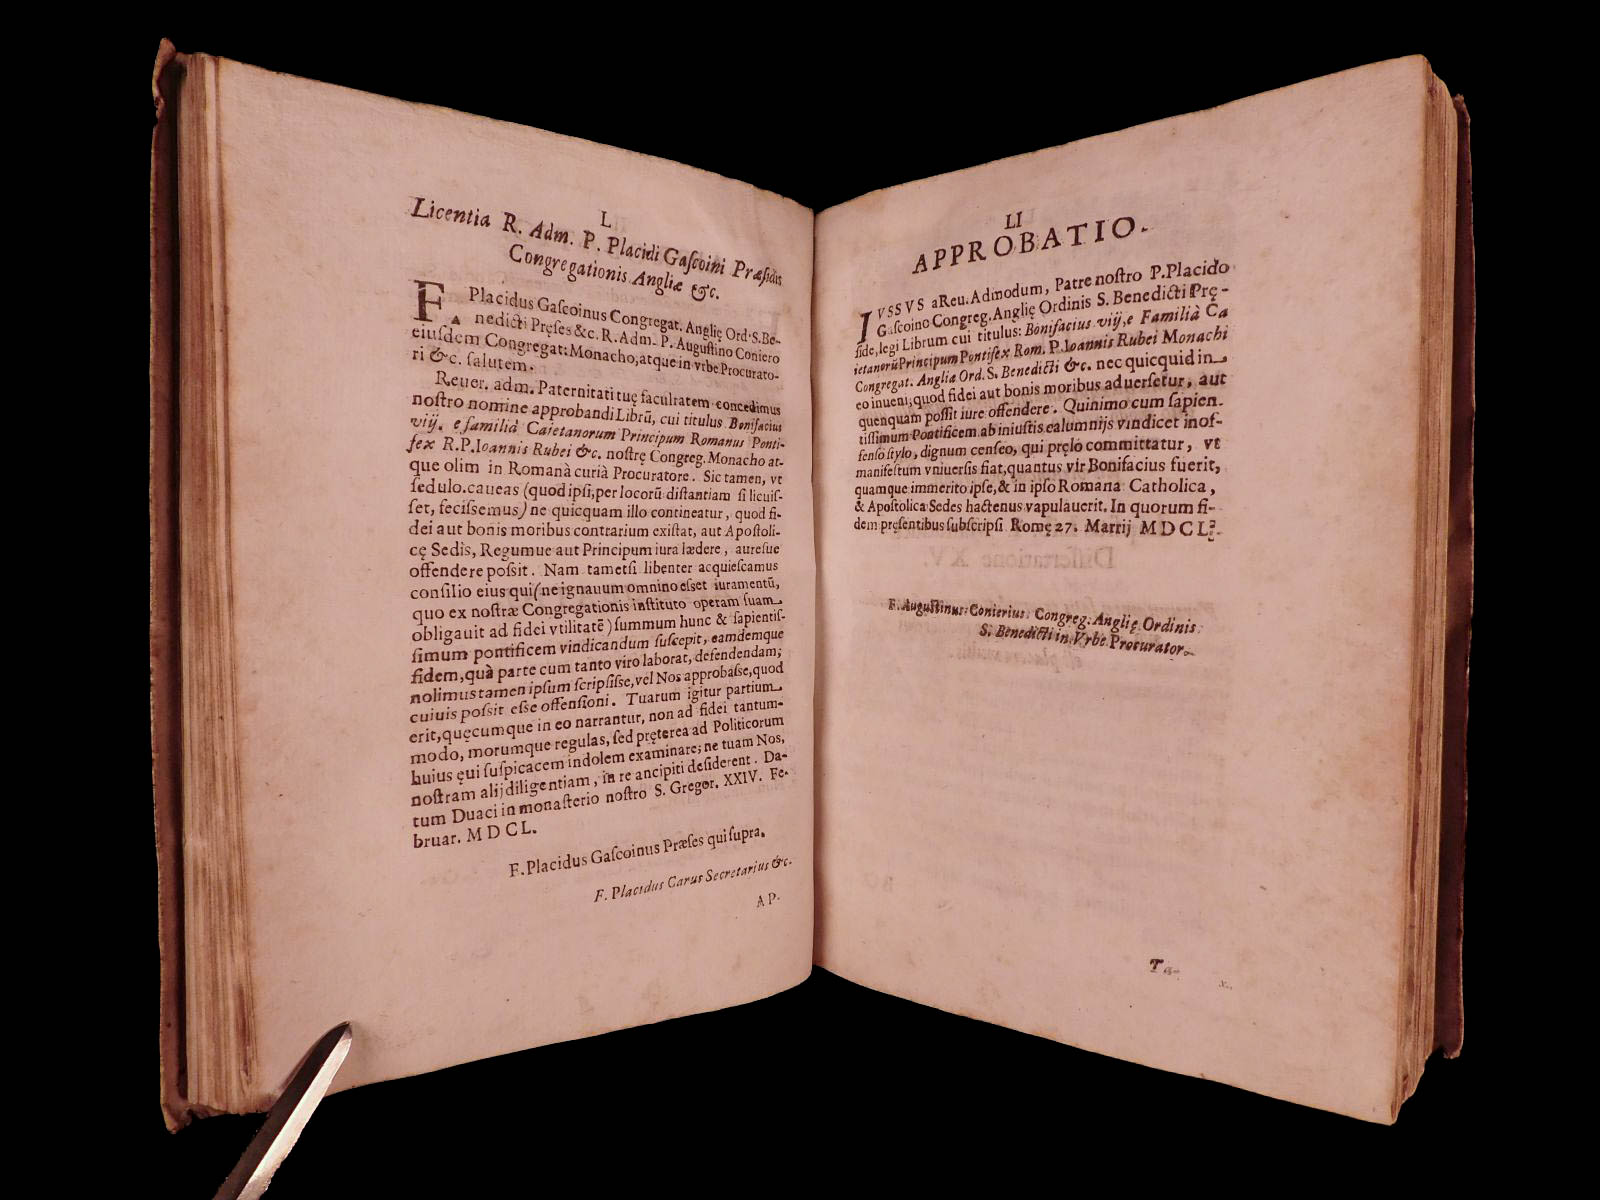 L
Licentia R. Adm. P. Placidi Gaſcoini Præſidis
Congregationis Angliæ &c.
F. Placidus Gaſcoinus Congregat. Anglię Ord. S. Be-
nedicti Pręſes &c. R. Adm. P. Auguſtino Coniero
eiuſdem Congregat: Monacho, atque in vrbe Procurato-
ri &c. ſalutem.
Reuer. adm. Paternitati tuę facultatem concedimus
noſtro nomine approbandi Librū, cui titulus Bonifacius
viij. e familiâ Caietanorum Principum Romanus Ponti-
fex R.P. Ioannis Rubei &c. noſtrę Congreg. Monacho at-
que olim in Romanà curià Procuratore. Sic tamen, vt
ſedulo caueas (quod ipſi, per locorū diſtantiam ſi licuiſ-
ſet, feciſſemus) ne quicquam illo contineatur, quod fi-
dei aut bonis moribus contrarium exiſtat, aut Apoſtoli-
cę Sedis, Regumue aut Principum iura lædere, aureſue
offendere poſsit. Nam tametſi libenter acquieſcamus
conſilio eius qui (ne ignauum omnino eſset iuramentū,
quo ex noſtræ Congregationis inſtituto operam ſuam
obligauit ad fidei vtilitatē) ſummum hunc & ſapientiſ-
ſimum pontificem vindicandum ſuſcepit, eamdemque
fidem, quà parte cum tanto viro laborat, defendendam;
nolimus tamen ipſum ſcripſiſse, vel Nos approbaſse, quod
cuiuis poſsit eſse offenſioni. Tuarum igitur partium
erit, quęcumque in eo narrantur, non ad fidei tantum-
modo, morumque regulas, ſed pręterea ad Politicorum
huius ęui ſuſpicacem indolem examinare; ne tuam Nos,
noſtram alij diligentiam, in re ancipiti deſiderent. Da-
tum Duaci in monaſterio noſtro S. Gregor. XXIV. Fe-
bruar. MDCL.
F. Placidus Gaſcoinus Præſes qui ſupra.
F. Placidus Carus Secretarius &c.
AP-
LI
APPROBATIO.
IVSSVS a Reu. Admodum, Patre noſtro P. Placido
Gaſcoino Congreg. Anglię Ordinis S. Benedicti Prę-
ſide, legi Librum cui titulus: Bonifacius viij, e Familiâ Ca
ietanorū Principum Pontifex Rom. P. Ioannis Rubei Monachi
Congregat. Angliæ Ord. S. Benedicti &c. nec quicquid in
eo inueni, quod fidei aut bonis moribus aduerſetur, aut
quenquam poſſit iure offendere. Quinimo cum ſapien-
tiſſimum Pontificem ab iniuſtis calumnijs vindicet inof-
fenſo ſtylo, dignum cenſeo, qui pręlo committatur, vt
manifeſtum vniuerſis fiat, quantus vir Bonifacius fuerit,
quamque immerito ipſe, & in ipſo Romana Catholica,
& Apoſtolica Sedes hactenus vapulauerit. In quorum fi-
dem pręſentibus ſubſcripſi Romę 27. Martij MDCL
F. Auguſtinus Conierius Congreg. Anglię Ordinis
S. Benedicti in Vrbe Procurator
Ta-